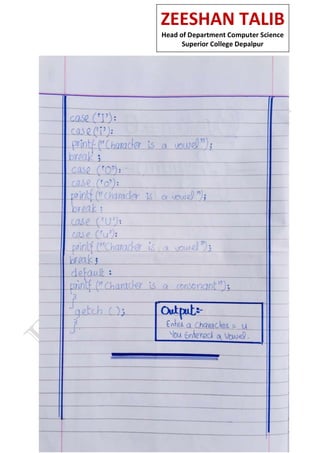 ZEESHAN TALIB
Head of Department Computer Science
Superior College Depalpur
case ('I'):
case ('i'):
printf ("Character is a vowel");
break ;
case ('O'):
case ('o'):
printf ("Character is a vowel");
break :
case ('U'):
case ('u'):
printf ("Character is a vowel");
break ;
default :
printf ("Character is a consonant");
}
getch ();
}
Output:-
Enter a character = u
You Entered a vowel.